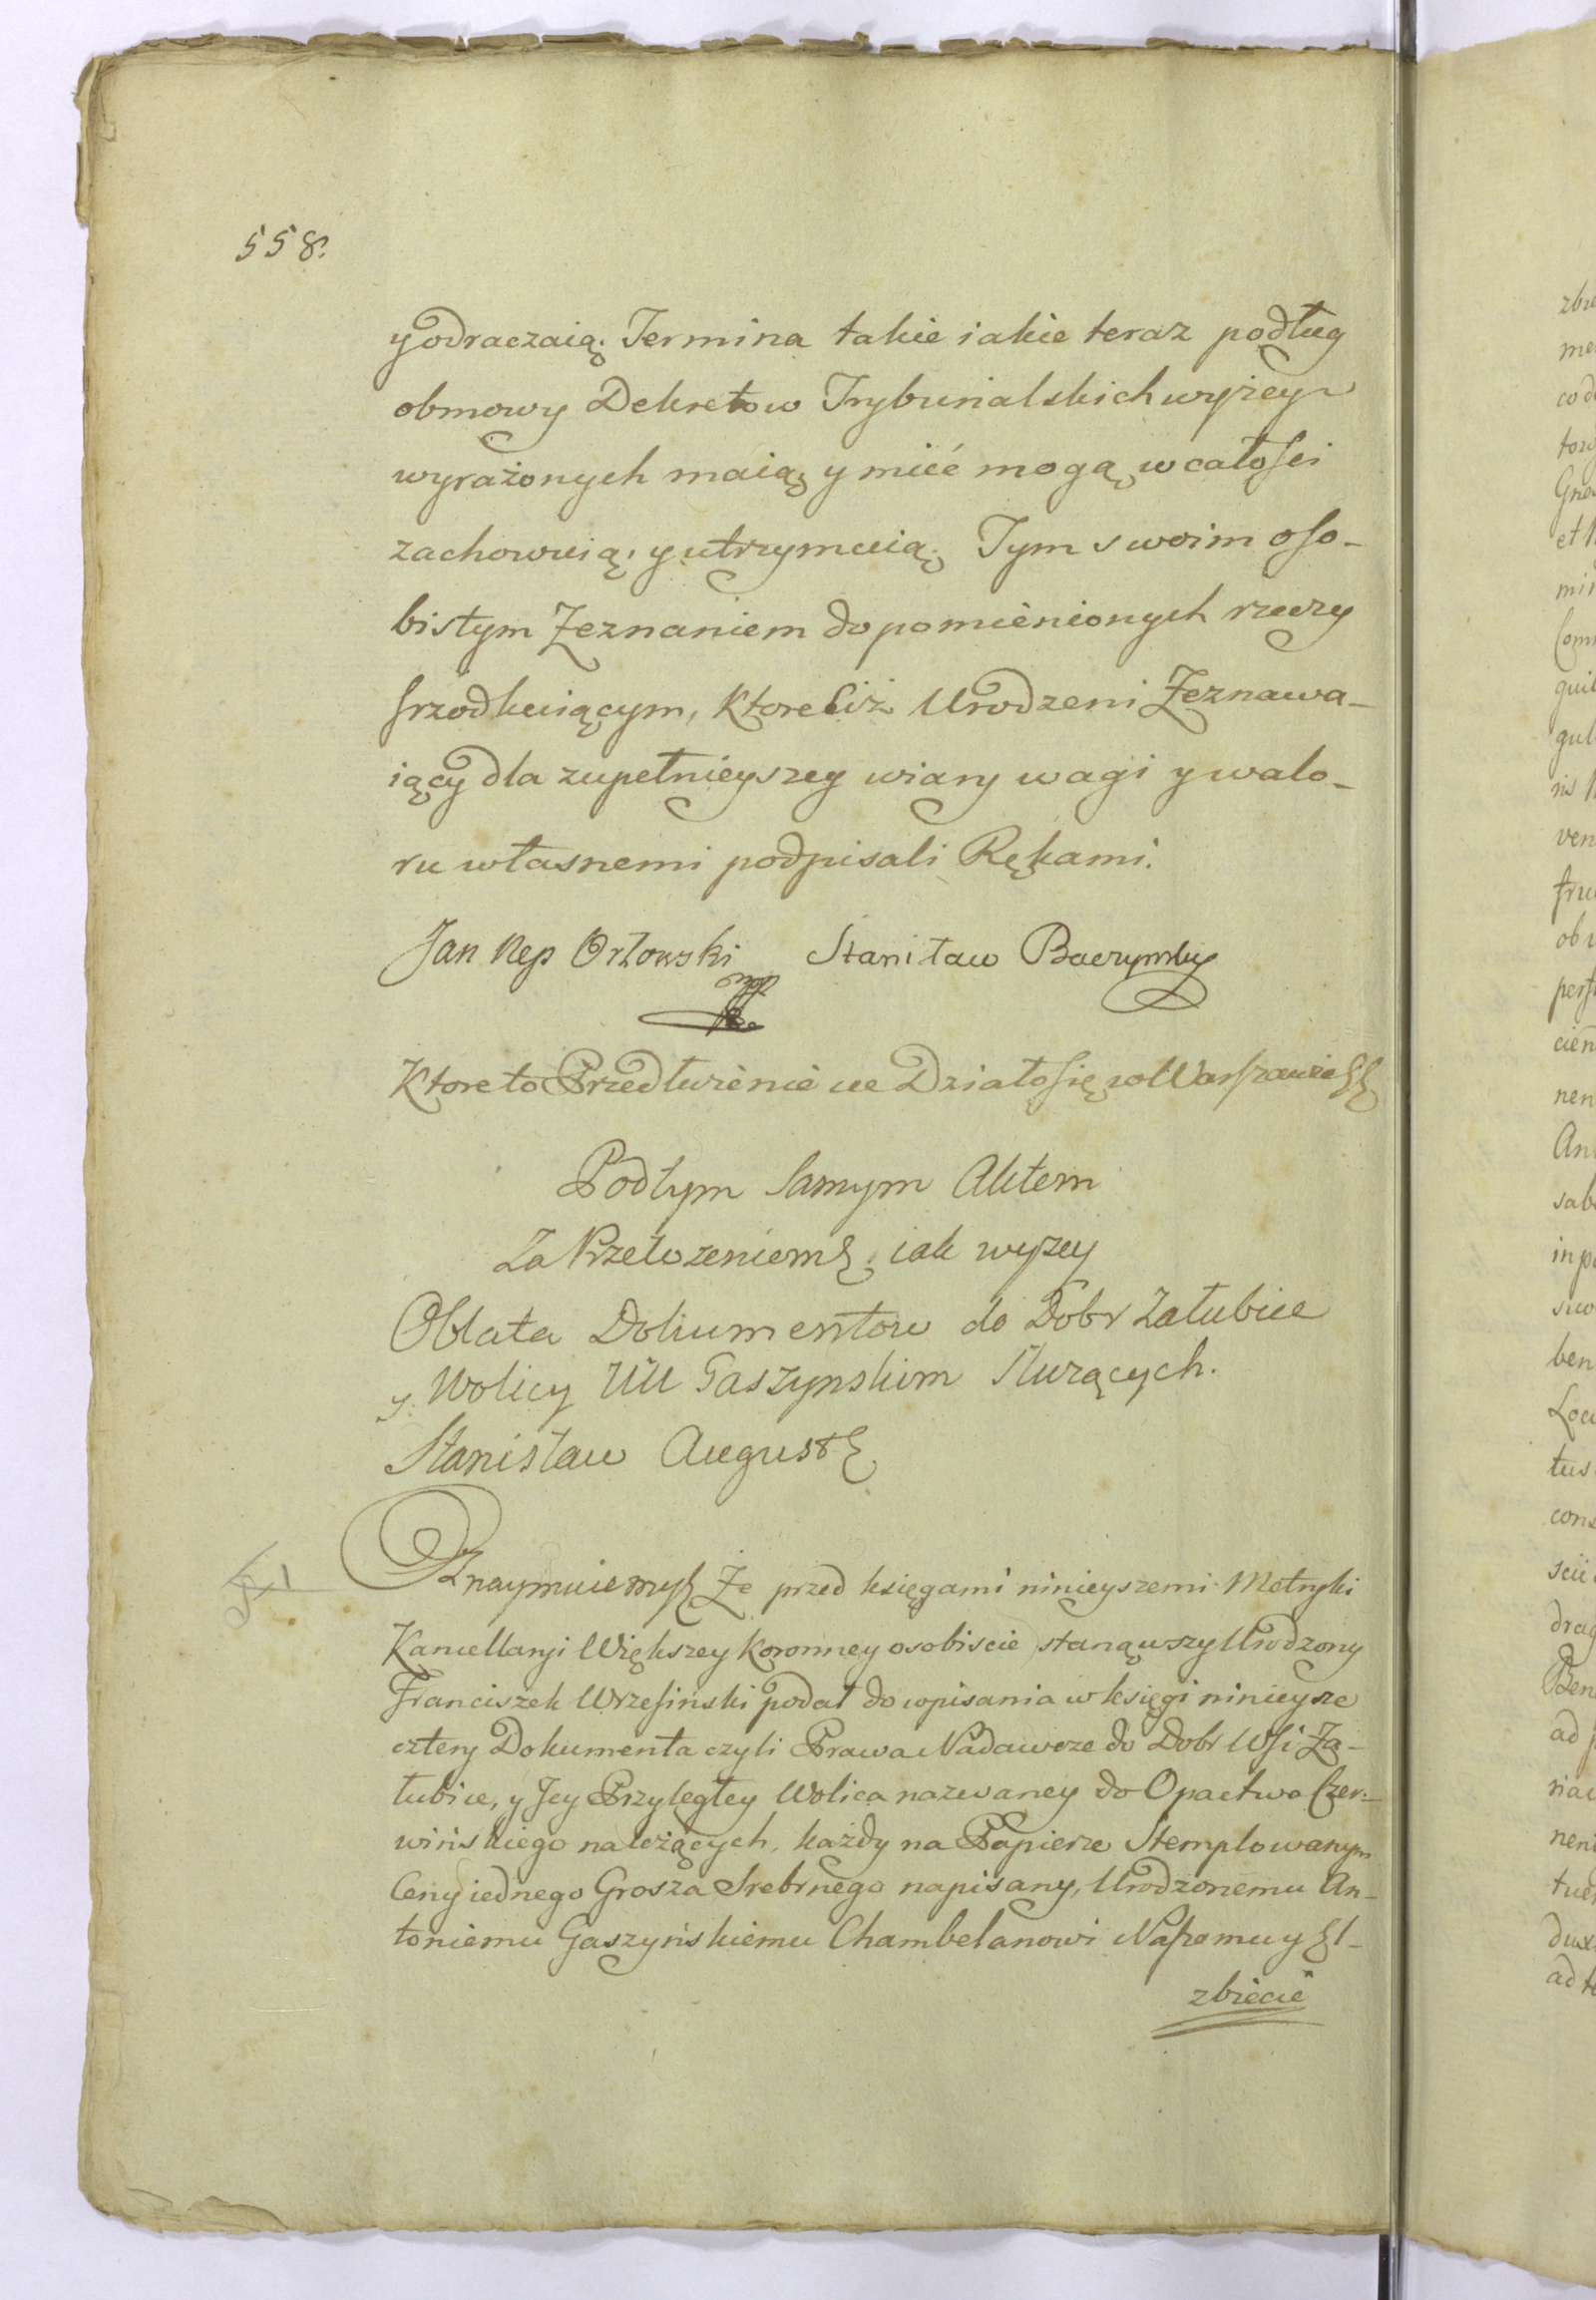 558.
y odraczaią. Termina takie iakie teraz podług
obmowy Dekretow Trybunalskich wyżey
wyrażonych maią y mieć mogą, w całości
zachowuią, y utrzymuią. Tym swoim oso-
bistym Zeznaniem do pomienionych rzeczy
srzodkuiącym, ktore ciż Urodzeni Zeznawa-
iący dla zupełnieyszey wiary wagi y walo-
ru własnemi podpisali Rękami.
Jan Nep Orłowski Stanisław
Ktore to Przedłużenie Działo się w Warszawie
Pod tym samym Aktem
Za Przełożeniem iak wyzey
Oblata Dokumentow do Dobr Załubice
y Wolicy UU Gaszynskim służących.
Stanisław August
Oznaymuiemy Że przed księgami ninieyszemi Metryki
Kancellaryi Większey Koronney osobiscie stanąwszy Urodzony
Franciszek Wrzesinski podał do wpisania w księgi ninieysze
cztery Dokumenta czyli Prawa Nadawcze do Dobr Wsi Za-
łubice, y Jey Przyległey Wolica nazwaney do Opactwa Czer-
wińskiego należących, każdy na Papierze Stemplowanym
Ceny iednego Grosza Srebrnego napisany, Urodzonemu An-
toniemu Gaszyńskiemu Chambelanowi Naszemu y El-
zbiecie